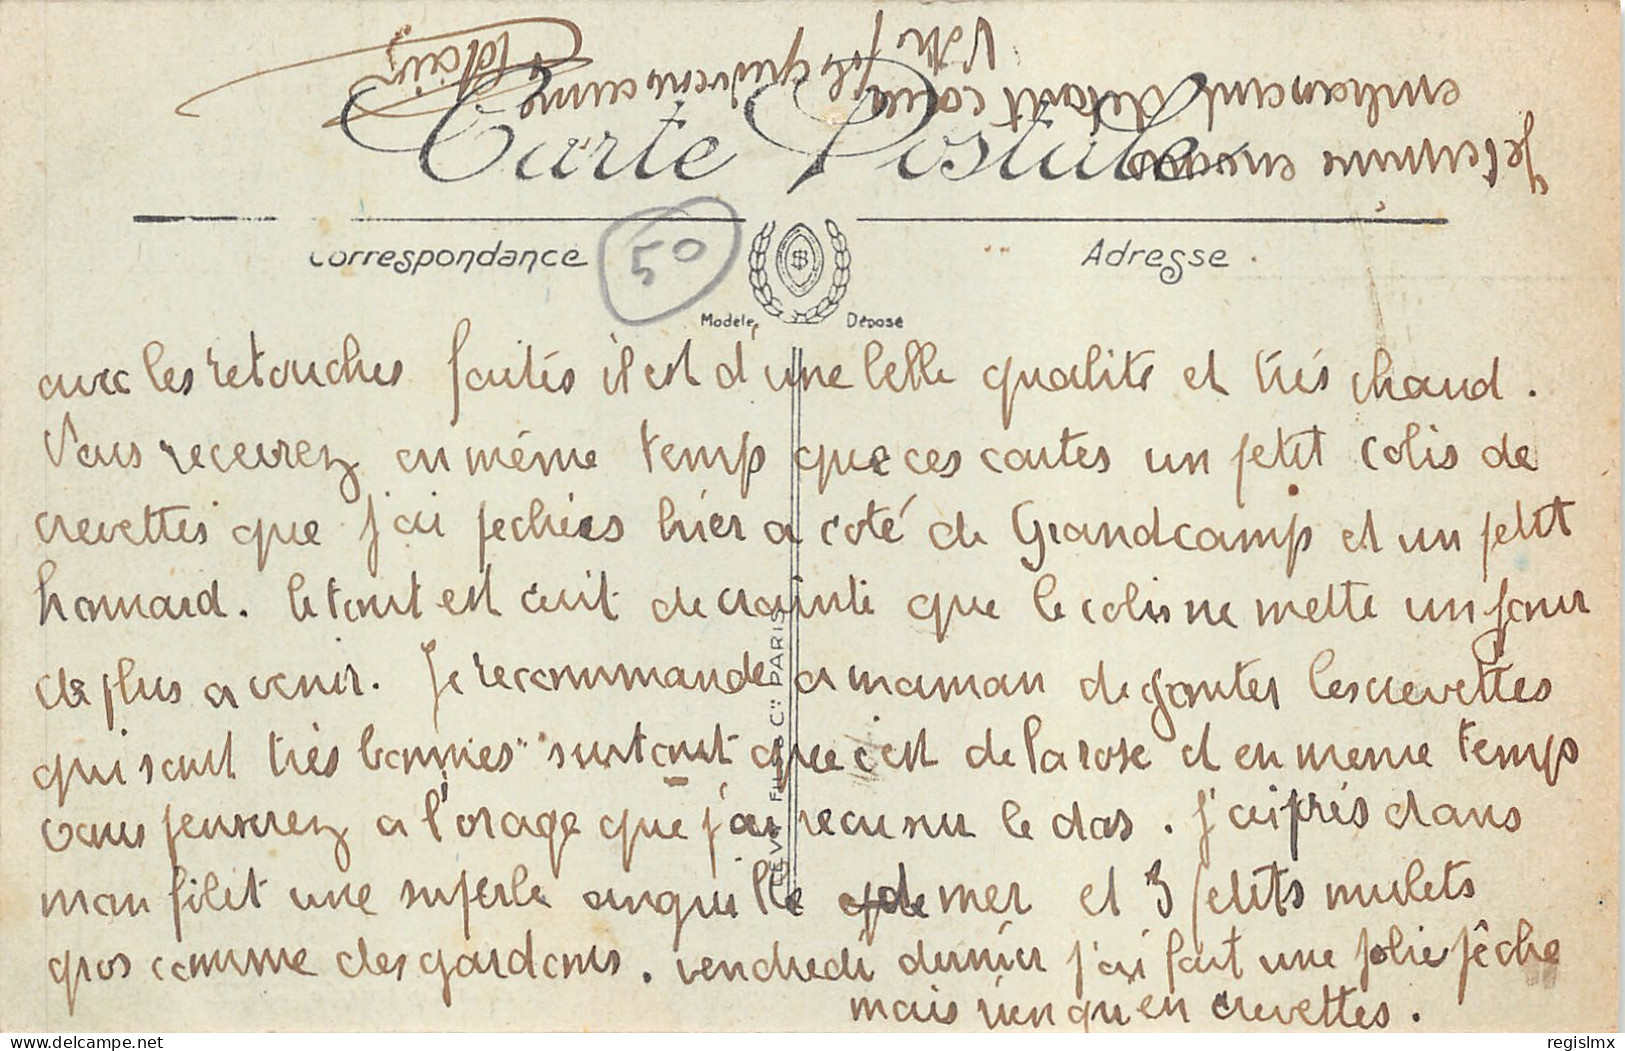 Carte Postale
Correspondance
50
Adresse
Modèle Déposé
avec les retouches faites il est d'une belle qualité et très chaud.
Vous recevrez en même temp que ces cartes un petit colis de
crevettes que j'ai pechées hier a coté de Grandcamp et un petit
homard. le tout est cuit de crainte que le colis ne mette un jour
de plus a venir. Je recommande a maman de gouter les crevettes
qui sont très bonnes surtout que c'est de la rose et en meme temps
vous penserez a l'orage que j'ai recu sur le dos. J'ai pris dans
mon filet une superbe anguille de mer et 3 petits mulets
gros comme des gardons. vendredi dernier j'ai fait une jolie pêche
mais rien qu'en crevettes.
LEVY FILS & Cie PARIS
Je termine en vous
embrassant de tout cœur
Votre fils qui vous aime